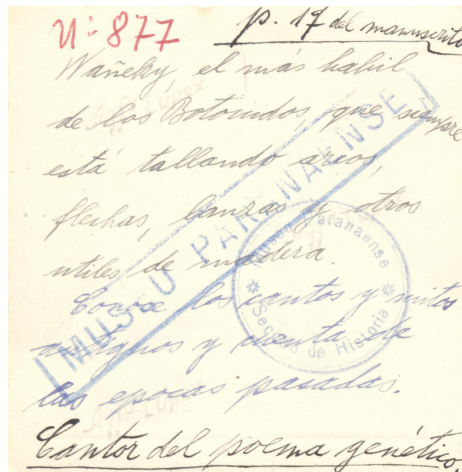 Nº 877
p. 17 del manuscrito
Wañeky, el más habil
de los Botocudos, que siempre
está tallando arcos,
flechas, lanzas y otros
utiles de madera.
Conoce los cantos y mitos
antiguos y cuenta de
las epocas pasadas.
Cantor del poema genético,
MUSEU PARANAENSE
Museu Paranaense
Secção de Historia